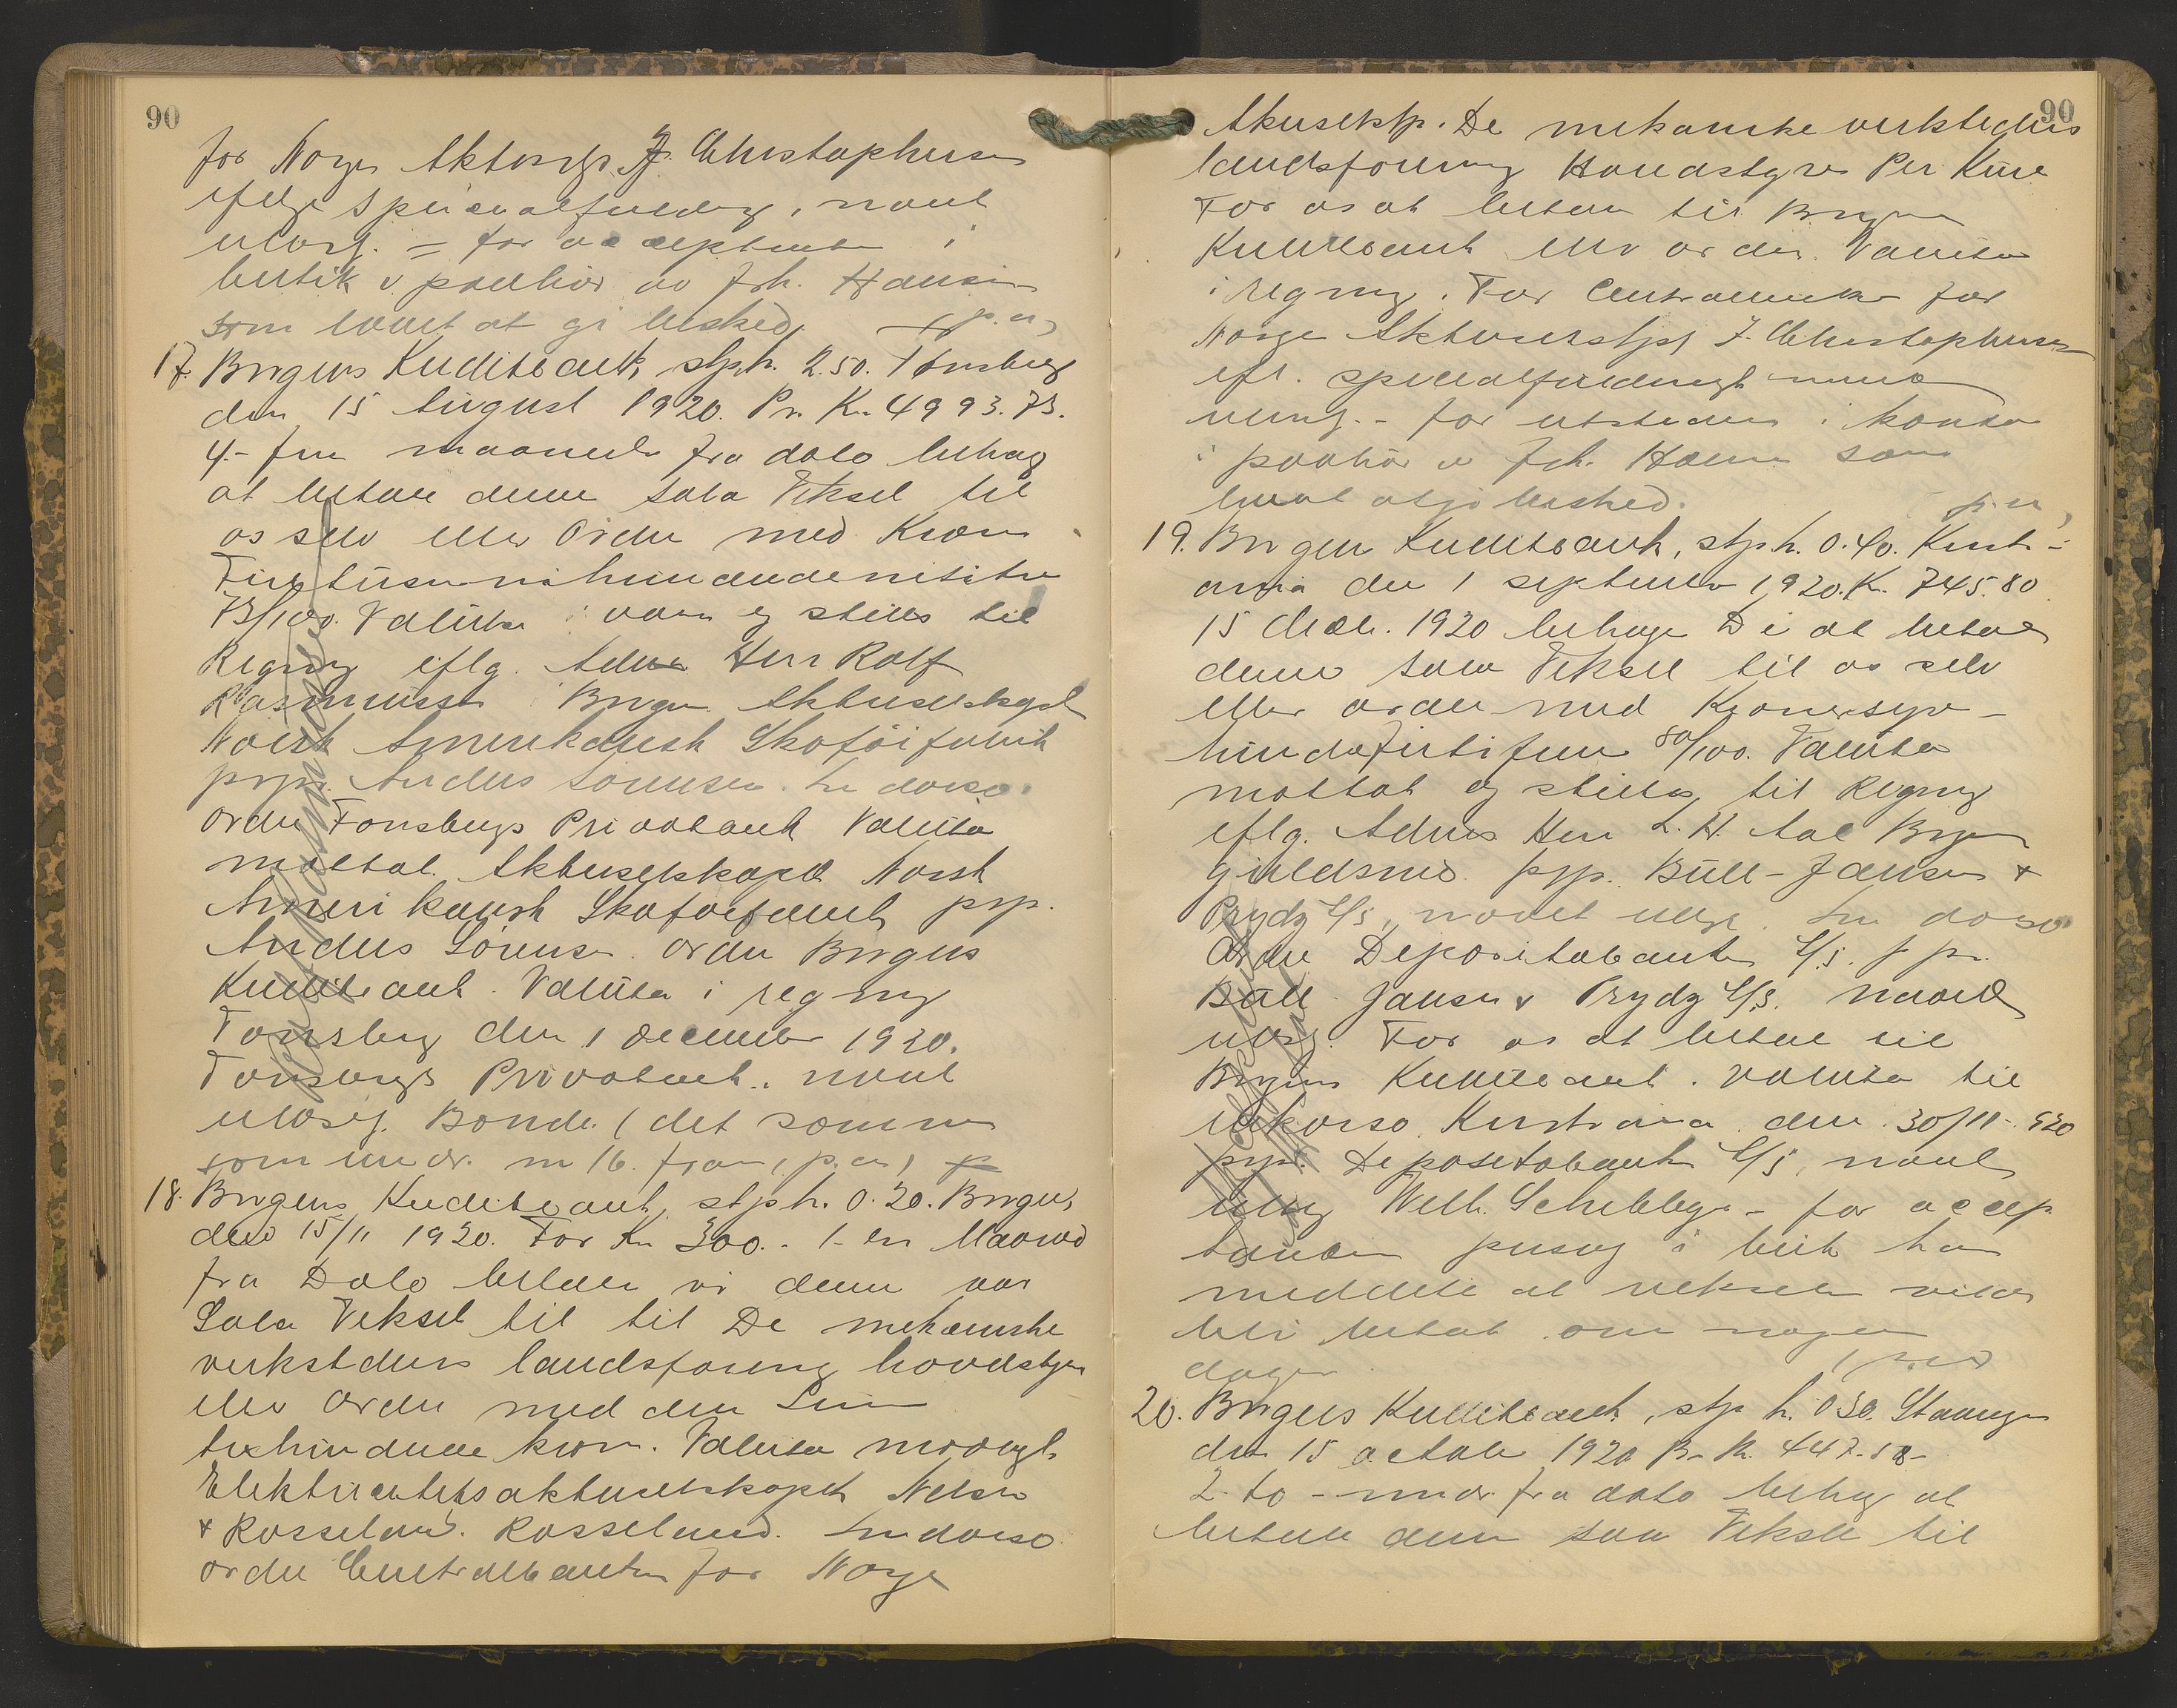 90
for Norge Aktieselsk. J. Christophersen
ifølge specialfuldmag, navnl
ulæsl. = for acceptanten i
butik i paahør av frk. Hansen
som lovet at gi besked (p.n)
17. Bergens Kreditbank, stph. 2.50. Tønsberg
den 15 August 1920. Pr. Kr. 4993.73.
4.- fire maaneder fra dato behag
at betale denne Sola Veksel til
os selv eller Ordre med Kroner
Firetusennihundredenittitre
73/100. Valuta i varer og stilles til
Regning iflg. Adr Herr Rolf
Rasmussen Bergen Aktieselskapet
Norsk Amerikansk Skotøifabrik
prpr. Anders Sørensen. In dorso:
Ordre Tønsbergs Privatbank Valuta
mottat. Aktieselskapet Norsk
Amerikansk Skotøifabrik prp.
Anders Sørensen. Ordre Bergens
Kreditbank. Valuta i regning
Tønsberg den 1 december 1920.
Tønsbergs Privatbank. navnl
ulæsl. Bonde. (det samme
som under nr 16. foran, p.n)
18. Bergens Kreditbank, stph. 0.20. Bergen,
den 15/11 1920. For Kr 300.- 1- en Maaned
fra Dato betaler vi denne vor
Sola Veksel til til De mekaniske
verksteders landsforening hovedstyre
eller Ordre med den Sum
trehundrede kron. Valuta
Elektricitetsaktieselskapet Nelson
& Rosseland. Rosseland. In dorso
ordre Centralbanken for Norge
90
Akuselsk. De mekaniske verksteders
landsforening Hovedstyre Per Kure
For os at betale til Bergens
Kreditbank eller ordre. Valuta
i regning. For Centralbanken for
Norge Aktieselskap J. Christophersen
efl. specialfuldmagt navn
ulæsl. - for utstederen i kontor
i paahør av frk. Hansen som
lovet at gi besked. p.n,
19. Bergens Kreditbank, stph. 0.40. Kristi-
ania den 1 september 1920. Kr. 745.80
15 decbr. 1920 behager De at betale
denne Sola Veksel til os selv
eller ordre med Kroner syv-
hundrefirtifem 80/100. Valuta
mottat og stilles til Regning
iflg. Adres Herr L. H. Aal Bergen
Guldsmed prp. Bull-Jansen &
Prydz A/S, navnet ulæsl. In dorso
Ordre Depositobanken A/S. ppr.
Bull Jansen & Prydz A/S. navnet
ulæsl. For os at betale til
Bergens Kreditbank. Valuta til
inkasso. Kristiania den 30/11-920
prpr. Depositobanken A/S, navnl
ulæsl Wilh. Schibbye - for accep
tanten personlig i butik han
meddelte at vekselen vilde
bli betalt om nogen
dager (p.n)
20. Bergens Kreditbank, stp h. 0.30. Stavanger
den 15 october 1920 Pr. Kr. 447.58-
2. to - mndr fra dato behag at
betale denne Sola Veksel til